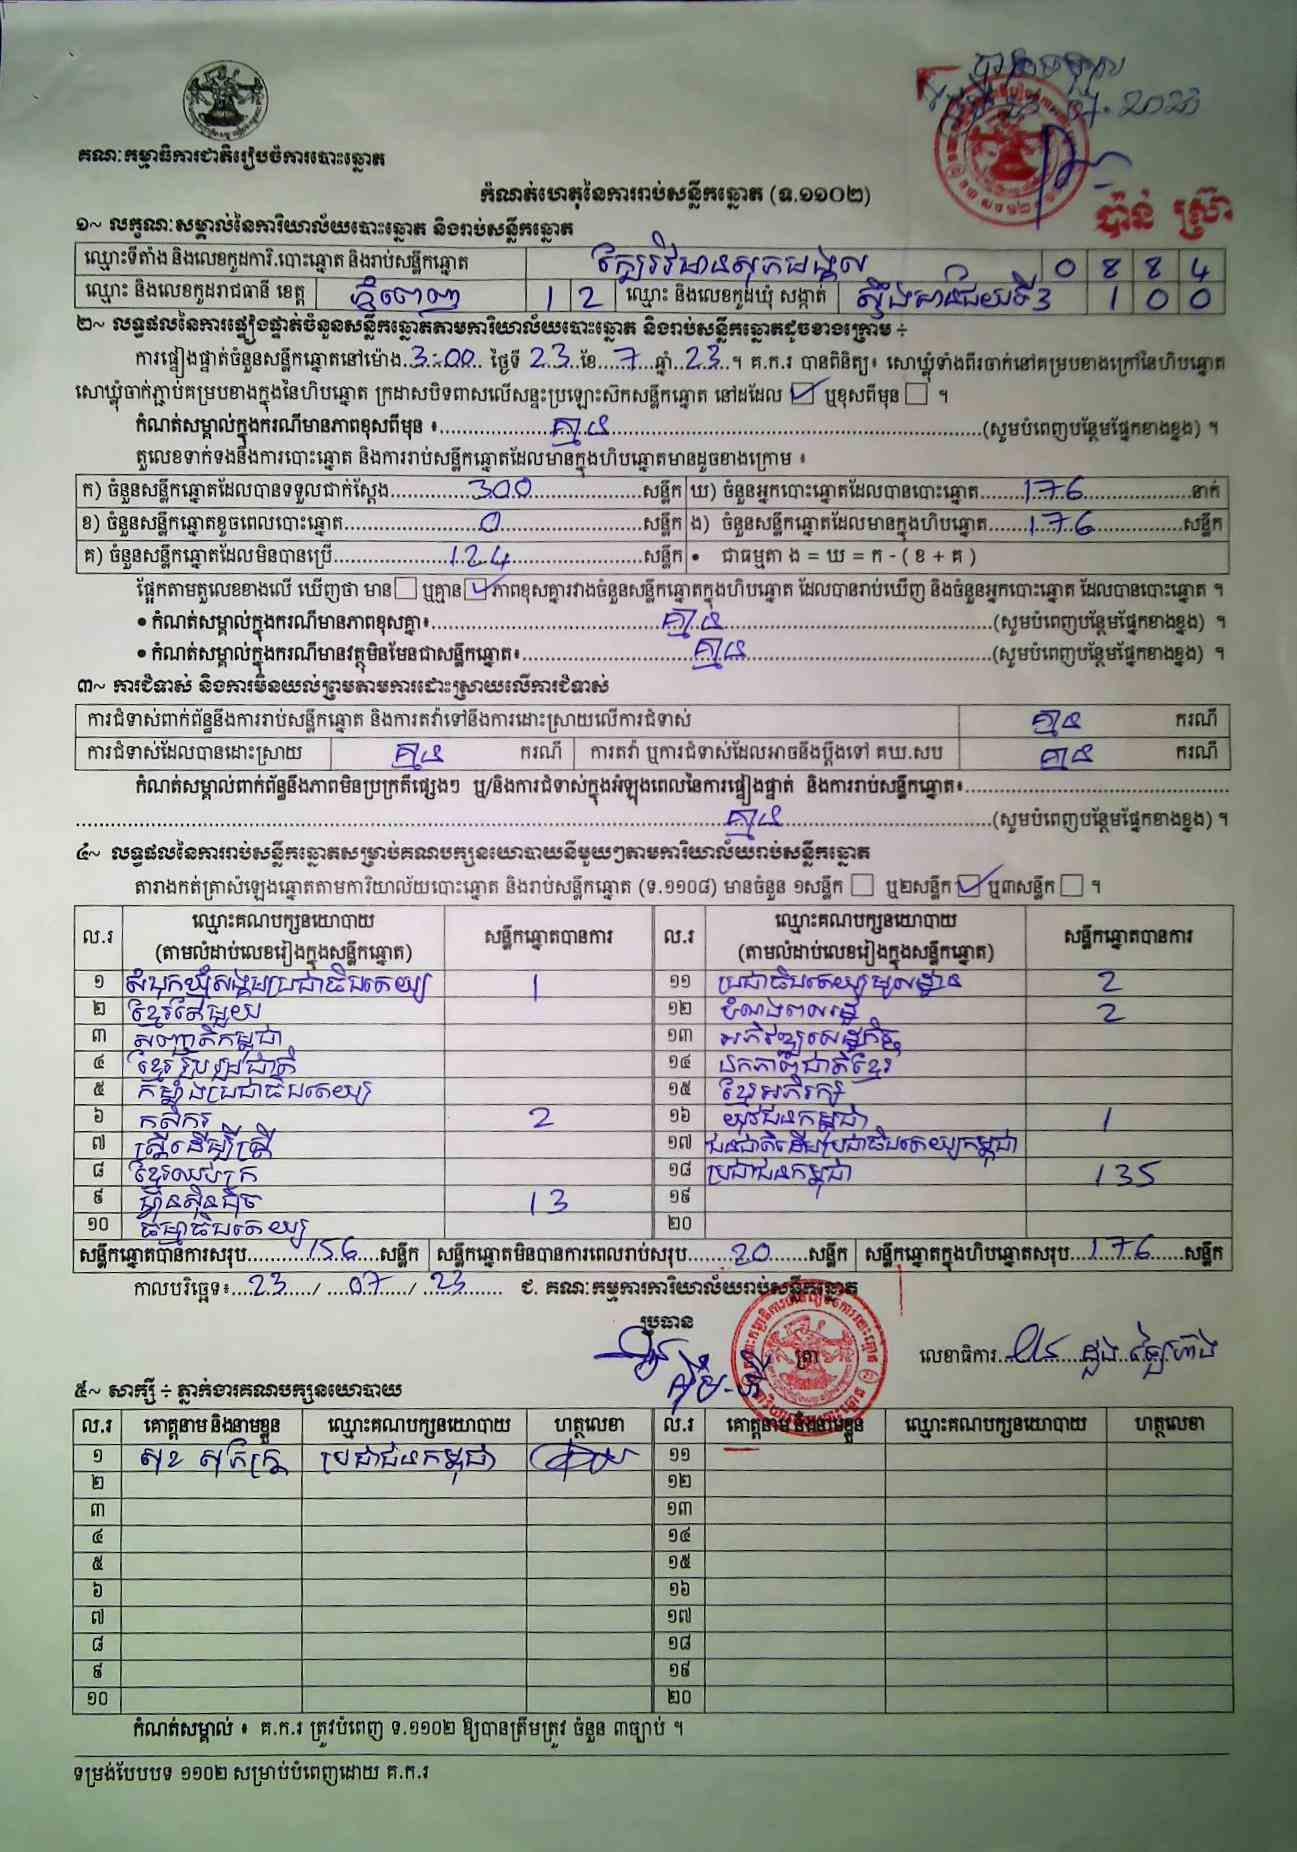 គណៈកម្មាធិការជាតិរៀបចំការបោះឆ្នោត
កំណត់ហេតុនៃការរាប់សន្លឹកឆ្នោត (ទ.១១០២)
ប៉ាន់ ស្រ៊ា
១~ លក្ខណៈសម្គាល់នៃការិយាល័យបោះឆ្នោត និងរាប់សន្លឹកឆ្នោត
ឈ្មោះទីតាំង និងលេខកូដការិ.បោះឆ្នោត និងរាប់សន្លឹកឆ្នោត ក្បែរវិមានសុភមង្គល 0 8 8 4
ឈ្មោះ និងលេខកូដរាជធានី ខេត្ត ភ្នំពេញ 1 2 ឈ្មោះ និងលេខកូដឃុំ សង្កាត់ ស្ទឹងមានជ័យទី3 1 0 0
២~ លទ្ធផលនៃការផ្ទៀងផ្ទាត់ចំនួនសន្លឹកឆ្នោតតាមការិយាល័យបោះឆ្នោត និងរាប់សន្លឹកឆ្នោតដូចខាងក្រោម ÷
ការផ្ទៀងផ្ទាត់ចំនួនសន្លឹកឆ្នោតនៅម៉ោង 3:00 ថ្ងៃទី 23 ខែ 7 ឆ្នាំ 23 ។ គ.ក.រ បានពិនិត្យ៖ សោឃ្លុំទាំងពីរចាក់នៅគម្របខាងក្រៅនៃហិបឆ្នោត
សោឃ្លុំចាក់ភ្ជាប់គម្របខាងក្នុងនៃហិបឆ្នោត ក្រដាសបិទពាសលើសន្ទះប្រឡោះស៊កសន្លឹកឆ្នោត នៅដដែល ☑ ឬខុសពីមុន ☐ ។
កំណត់សម្គាល់ក្នុងករណីមានភាពខុសពីមុន ៖ គ្មាន (សូមបំពេញបន្ថែមផ្នែកខាងខ្នង) ។
តួលេខទាក់ទងនឹងការបោះឆ្នោត និងការរាប់សន្លឹកឆ្នោតដែលមានក្នុងហិបឆ្នោតមានដូចខាងក្រោម ៖
ក) ចំនួនសន្លឹកឆ្នោតដែលបានទទួលជាក់ស្ដែង 300 សន្លឹក ឃ) ចំនួនអ្នកបោះឆ្នោតដែលបានបោះឆ្នោត 176 នាក់
ខ) ចំនួនសន្លឹកឆ្នោតខូចពេលបោះឆ្នោត 0 សន្លឹក ង) ចំនួនសន្លឹកឆ្នោតដែលមានក្នុងហិបឆ្នោត 176 សន្លឹក
គ) ចំនួនសន្លឹកឆ្នោតដែលមិនបានប្រើ 124 សន្លឹក • ជាធម្មតា ង = ឃ = ក - ( ខ + គ )
ផ្អែកតាមតួលេខខាងលើ ឃើញថា មាន ☐ ឬគ្មាន ☑ ភាពខុសគ្នារវាងចំនួនសន្លឹកឆ្នោតក្នុងហិបឆ្នោត ដែលបានរាប់ឃើញ និងចំនួនអ្នកបោះឆ្នោត ដែលបានបោះឆ្នោត ។
• កំណត់សម្គាល់ក្នុងករណីមានភាពខុសគ្នា៖ គ្មាន (សូមបំពេញបន្ថែមផ្នែកខាងខ្នង) ។
• កំណត់សម្គាល់ក្នុងករណីមានវត្ថុមិនមែនជាសន្លឹកឆ្នោត៖ គ្មាន (សូមបំពេញបន្ថែមផ្នែកខាងខ្នង) ។
៣~ ការជំទាស់ និងការមិនយល់ព្រមតាមការដោះស្រាយលើការជំទាស់
ការជំទាស់ពាក់ព័ន្ធនឹងការរាប់សន្លឹកឆ្នោត និងការតវ៉ាទៅនឹងការដោះស្រាយលើការជំទាស់ គ្មាន ករណី
ការជំទាស់ដែលបានដោះស្រាយ គ្មាន ករណី ការតវ៉ា ឬការជំទាស់ដែលអាចនឹងប្ដឹងទៅ គឃ.សប គ្មាន ករណី
កំណត់សម្គាល់ពាក់ព័ន្ធនឹងភាពមិនប្រក្រតីផ្សេងៗ ឬ/និងការជំទាស់ក្នុងអំឡុងពេលនៃការផ្ទៀងផ្ទាត់ និងការរាប់សន្លឹកឆ្នោត៖
គ្មាន (សូមបំពេញបន្ថែមផ្នែកខាងខ្នង) ។
៤~ លទ្ធផលនៃការរាប់សន្លឹកឆ្នោតសម្រាប់គណបក្សនយោបាយនីមួយៗតាមការិយាល័យរាប់សន្លឹកឆ្នោត
តារាងកត់ត្រាសំឡេងឆ្នោតតាមការិយាល័យបោះឆ្នោត និងរាប់សន្លឹកឆ្នោត (ទ.១១០៨) មានចំនួន ១សន្លឹក ☐ ឬ២សន្លឹក ☑ ឬ៣សន្លឹក ☐ ។
ល.រ ឈ្មោះគណបក្សនយោបាយ (តាមលំដាប់លេខរៀងក្នុងសន្លឹកឆ្នោត) សន្លឹកឆ្នោតបានការ ល.រ ឈ្មោះគណបក្សនយោបាយ (តាមលំដាប់លេខរៀងក្នុងសន្លឹកឆ្នោត) សន្លឹកឆ្នោតបានការ
១ សំបុកឃ្មុំសង្គមប្រជាធិបតេយ្យ 1 ១១ ប្រជាធិបតេយ្យមូលដ្ឋាន 2
២ ខ្មែរតែមួយ ១២ បំណងពលរដ្ឋ 2
៣ សញ្ជាតិកម្ពុជា ១៣ អភិវឌ្ឍសេដ្ឋកិច្ច
៤ ខ្មែររួបរួមជាតិ ១៤ ឯកភាពជាតិខ្មែរ
៥ កម្លាំងប្រជាធិបតេយ្យ ១៥ ខ្មែរអភិរក្ស
៦ កសិករ 2 ១៦ យុវជនកម្ពុជា 1
៧ ស្ត្រីដើម្បីស្ត្រី ១៧ ជនជាតិដើមប្រជាធិបតេយ្យកម្ពុជា
៨ ខ្មែរឈប់ក្រ ១៨ ប្រជាជនកម្ពុជា 135
៩ ហ៊្វុនស៊ិនប៉ិច 13 ១៩
១០ ធម្មាធិបតេយ្យ ២០
សន្លឹកឆ្នោតបានការសរុប 156 សន្លឹក សន្លឹកឆ្នោតមិនបានការពេលរាប់សរុប 20 សន្លឹក សន្លឹកឆ្នោតក្នុងហិបឆ្នោតសរុប 176 សន្លឹក
កាលបរិច្ឆេទ៖ 23 / 07 / 23 ជ. គណៈកម្មការការិយាល័យរាប់សន្លឹកឆ្នោត
ប្រធាន
ត្រា
លេខាធិការ
៥~ សាក្សី ÷ ភ្នាក់ងារគណបក្សនយោបាយ
ល.រ គោត្តនាម និងនាមខ្លួន ឈ្មោះគណបក្សនយោបាយ ហត្ថលេខា ល.រ គោត្តនាម និងនាមខ្លួន ឈ្មោះគណបក្សនយោបាយ ហត្ថលេខា
១ សុខ សុភ័ក្ត្រ ប្រជាជនកម្ពុជា ១១
២ ១២
៣ ១៣
៤ ១៤
៥ ១៥
៦ ១៦
៧ ១៧
៨ ១៨
៩ ១៩
១០ ២០
កំណត់សម្គាល់ ៖ គ.ក.រ ត្រូវបំពេញ ទ.១១០២ ឱ្យបានត្រឹមត្រូវ ចំនួន ៣ច្បាប់ ។
ទម្រង់បែបបទ ១១០២ សម្រាប់បំពេញដោយ គ.ក.រ